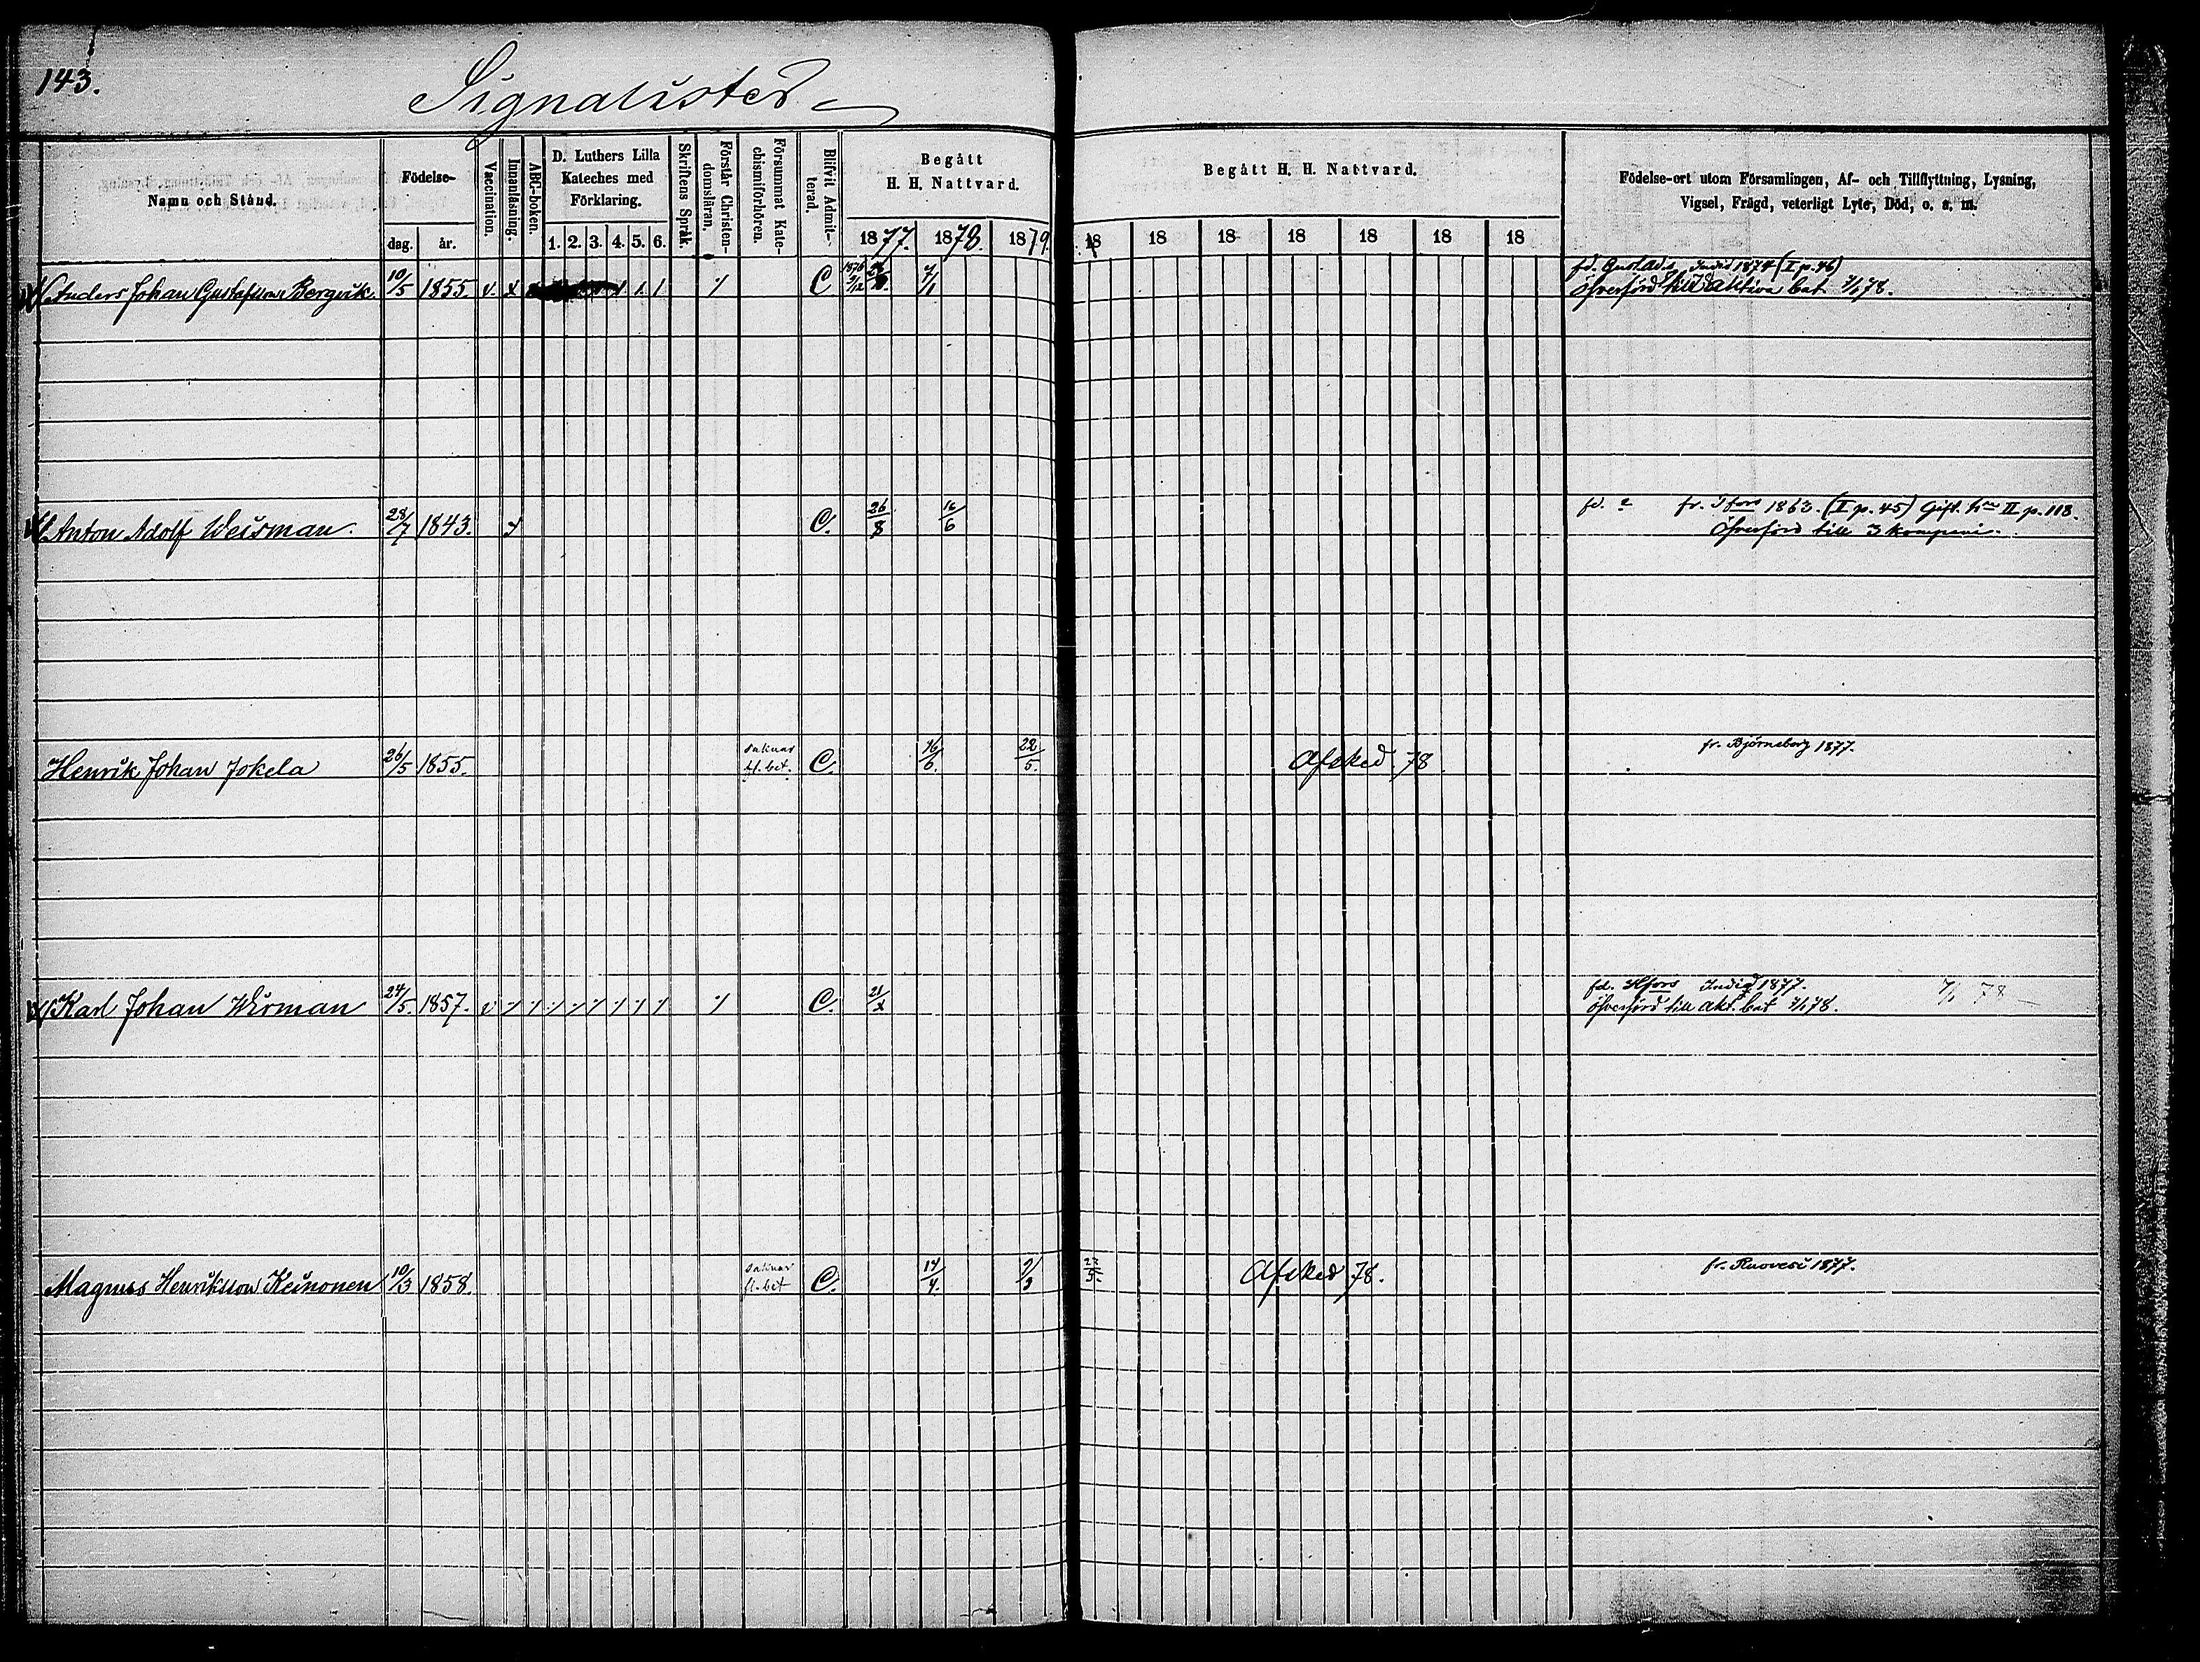 143.
Signalister
Namn och Stånd.
Födelse-
dag. år.
Vaccination.
Innanläsning.
ABC-boken.
D. Luthers Lilla
Kateches med
Förklaring.
1. 2. 3. 4. 5. 6.
Skriftens Språk.
Förstår Christen-
domsläran.
Försummat Kate-
chismiförhören.
Blifvit Admit-
terad.
Begått
H. H. Nattvard.
1877. 1878. 1879.
Begått H. H. Nattvard.
18 18 18 18 18 18 18
Födelse-ort utom Församlingen, Af- och Tillflyttning, Lysning,
Vigsel, Frägd, veterligt Lyte, Död, o. s. m.
Anders Johan Gustafsson Bergvik. 10/5 1855. v. x C. 1876 3/12 7/1
fd. Gustads Indid 1874 (I p. 46)
öfverförd till aktiva bat 7/1 78.
Anton Adolf Weisman. 28/7 1843. C. 26/8 16/6
fd. ? fr. Hfors 1863. (I p. 45) Gift. II p. 118.
Öfverförd till 3 kompani.
Henrik Johan Jokela 26/5 1855. saknar fl. bet. C. 16/6. 22/5. Afsked 78 fr. Björneborg 1877.
Karl Johan Wirman 24/5. 1857. v C. 21/x
fd. Hfors Indid 1877. 7/1 78
öfverförd till akt. bat 7/1 78.
Magnus Henriksson Keinonen 10/3 1858. saknar fl. bet C. 14/4. 2/3 22/5. Afsked 78. fr. Ruovesi 1877.